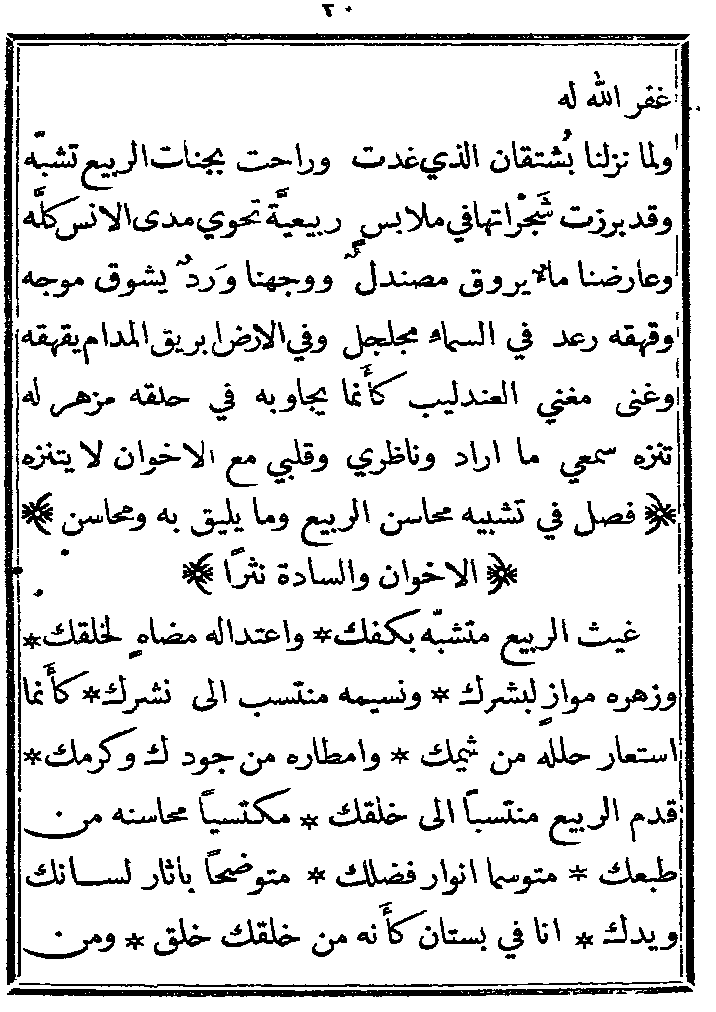 ٢٠
غفر الله له
ولما نزلنا بُشتقان الذي غدت وراحت بجنات الربيع تشبّه
وقد برزت شَجْراتها في ملابس ربيعيَّة تحوي مدى الانس كلَّه
وعارضنا ماء يروق مصندل ووجهنا وَردٌ يشوق موجه
وقهقه رعد في السماء مجلجل وفي الارض ابريق المدام يقهقه
وغنى مغني العندليب كأنما يجاوبه في حلقه مزهر له
تنزه سمعي ما اراد وناظري وقلبي مع الاخوان لا يتنزه
﴿ فصل في تشبيه محاسن الربيع وما يليق به ومحاسن ﴾
﴿ الاخوان والسادة نثرًا ﴾
غيث الربيع متشبّه بكفك * واعتداله مضاهٍ لخلقك *
وزهره موازٍ لبشرك * ونسيمه منتسب الى نشرك * كأنما
استعار حلله من شيمك * وامطاره من جودك وكرمك *
قدم الربيع منتسبًا الى خلقك * مكتسيًا محاسنه من
طبعك * متوسما انوار فضلك * متوضحًا باثار لسانك
ويدك * انا في بستان كأنه من خلقك خلق * ومن